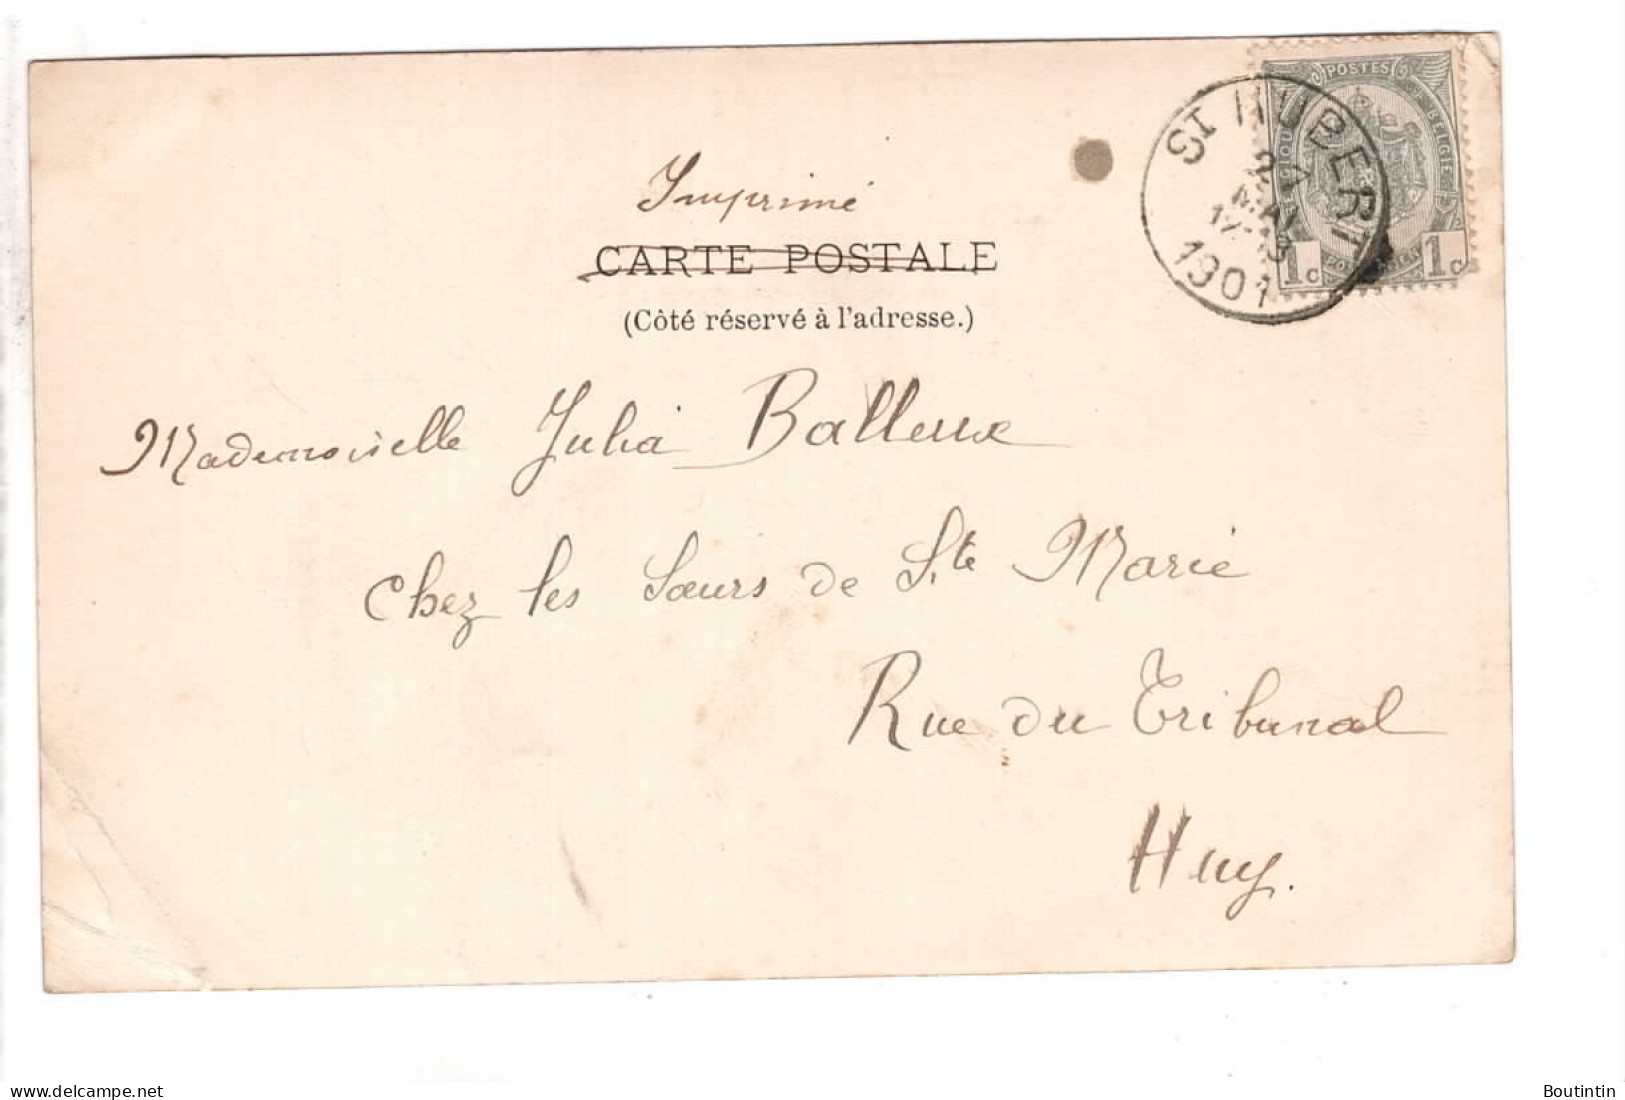 Imprimé
CARTE POSTALE
(Côté réservé à l'adresse.)
ST HUBERT
MAI
1901
POSTES
BELGIE
1c 1c
Mademoiselle Julia Balleux
Chez les Sœurs de Ste Marie
Rue du Tribunal
Huy.
delcampe.net
Boutintin